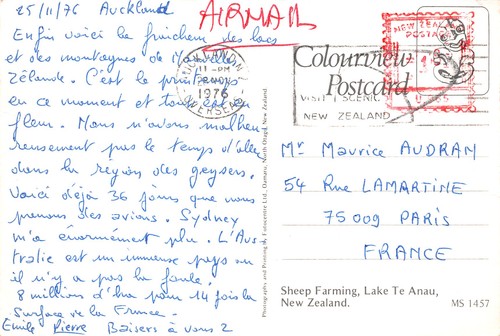 25/11/76 Auckland
AIRMAIL
Enfin voici la fraicheur des lacs
et des montagnes de Nouvelle
Zélande. C'est le printemps
en ce moment et tout est en
fleur. Nous n'avons malheu
reusement pas le temps d'aller
dans la région des geysers.
Voici déjà 36 jours que nous
prenons des avions. Sydney
m'a énormément plu. L'Aus
tralie est un immense pays ou
il n'y a pas la foule.
8 millions d'hab pour 14 fois la
surface de la France.
Emile Pierre Baisers à vous 2
NEW ZEALAND
POSTAGE
11 - PM
1976
UNIVERSAL
VISIT SCENIC
NEW ZEALAND
Colourview
Postcard
Mr Maurice AUDRAN
54 Rue LAMARTINE
75009 PARIS
FRANCE
Photographed and Printed by Fotocentre Ltd., Oamaru, North Otago, New Zealand
Sheep Farming, Lake Te Anau,
New Zealand.
MS 1457